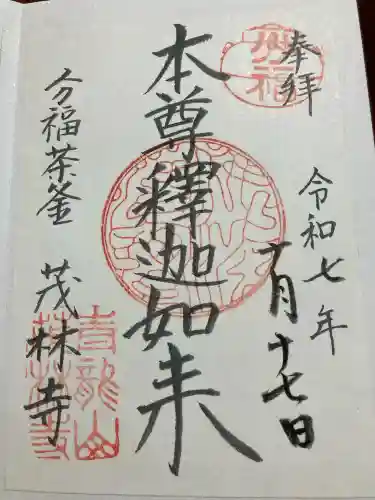 奉拝
令和七年
十月十七日
本尊釋迦如来
分福茶釜
茂林寺
分福
青龍山
茂林寺